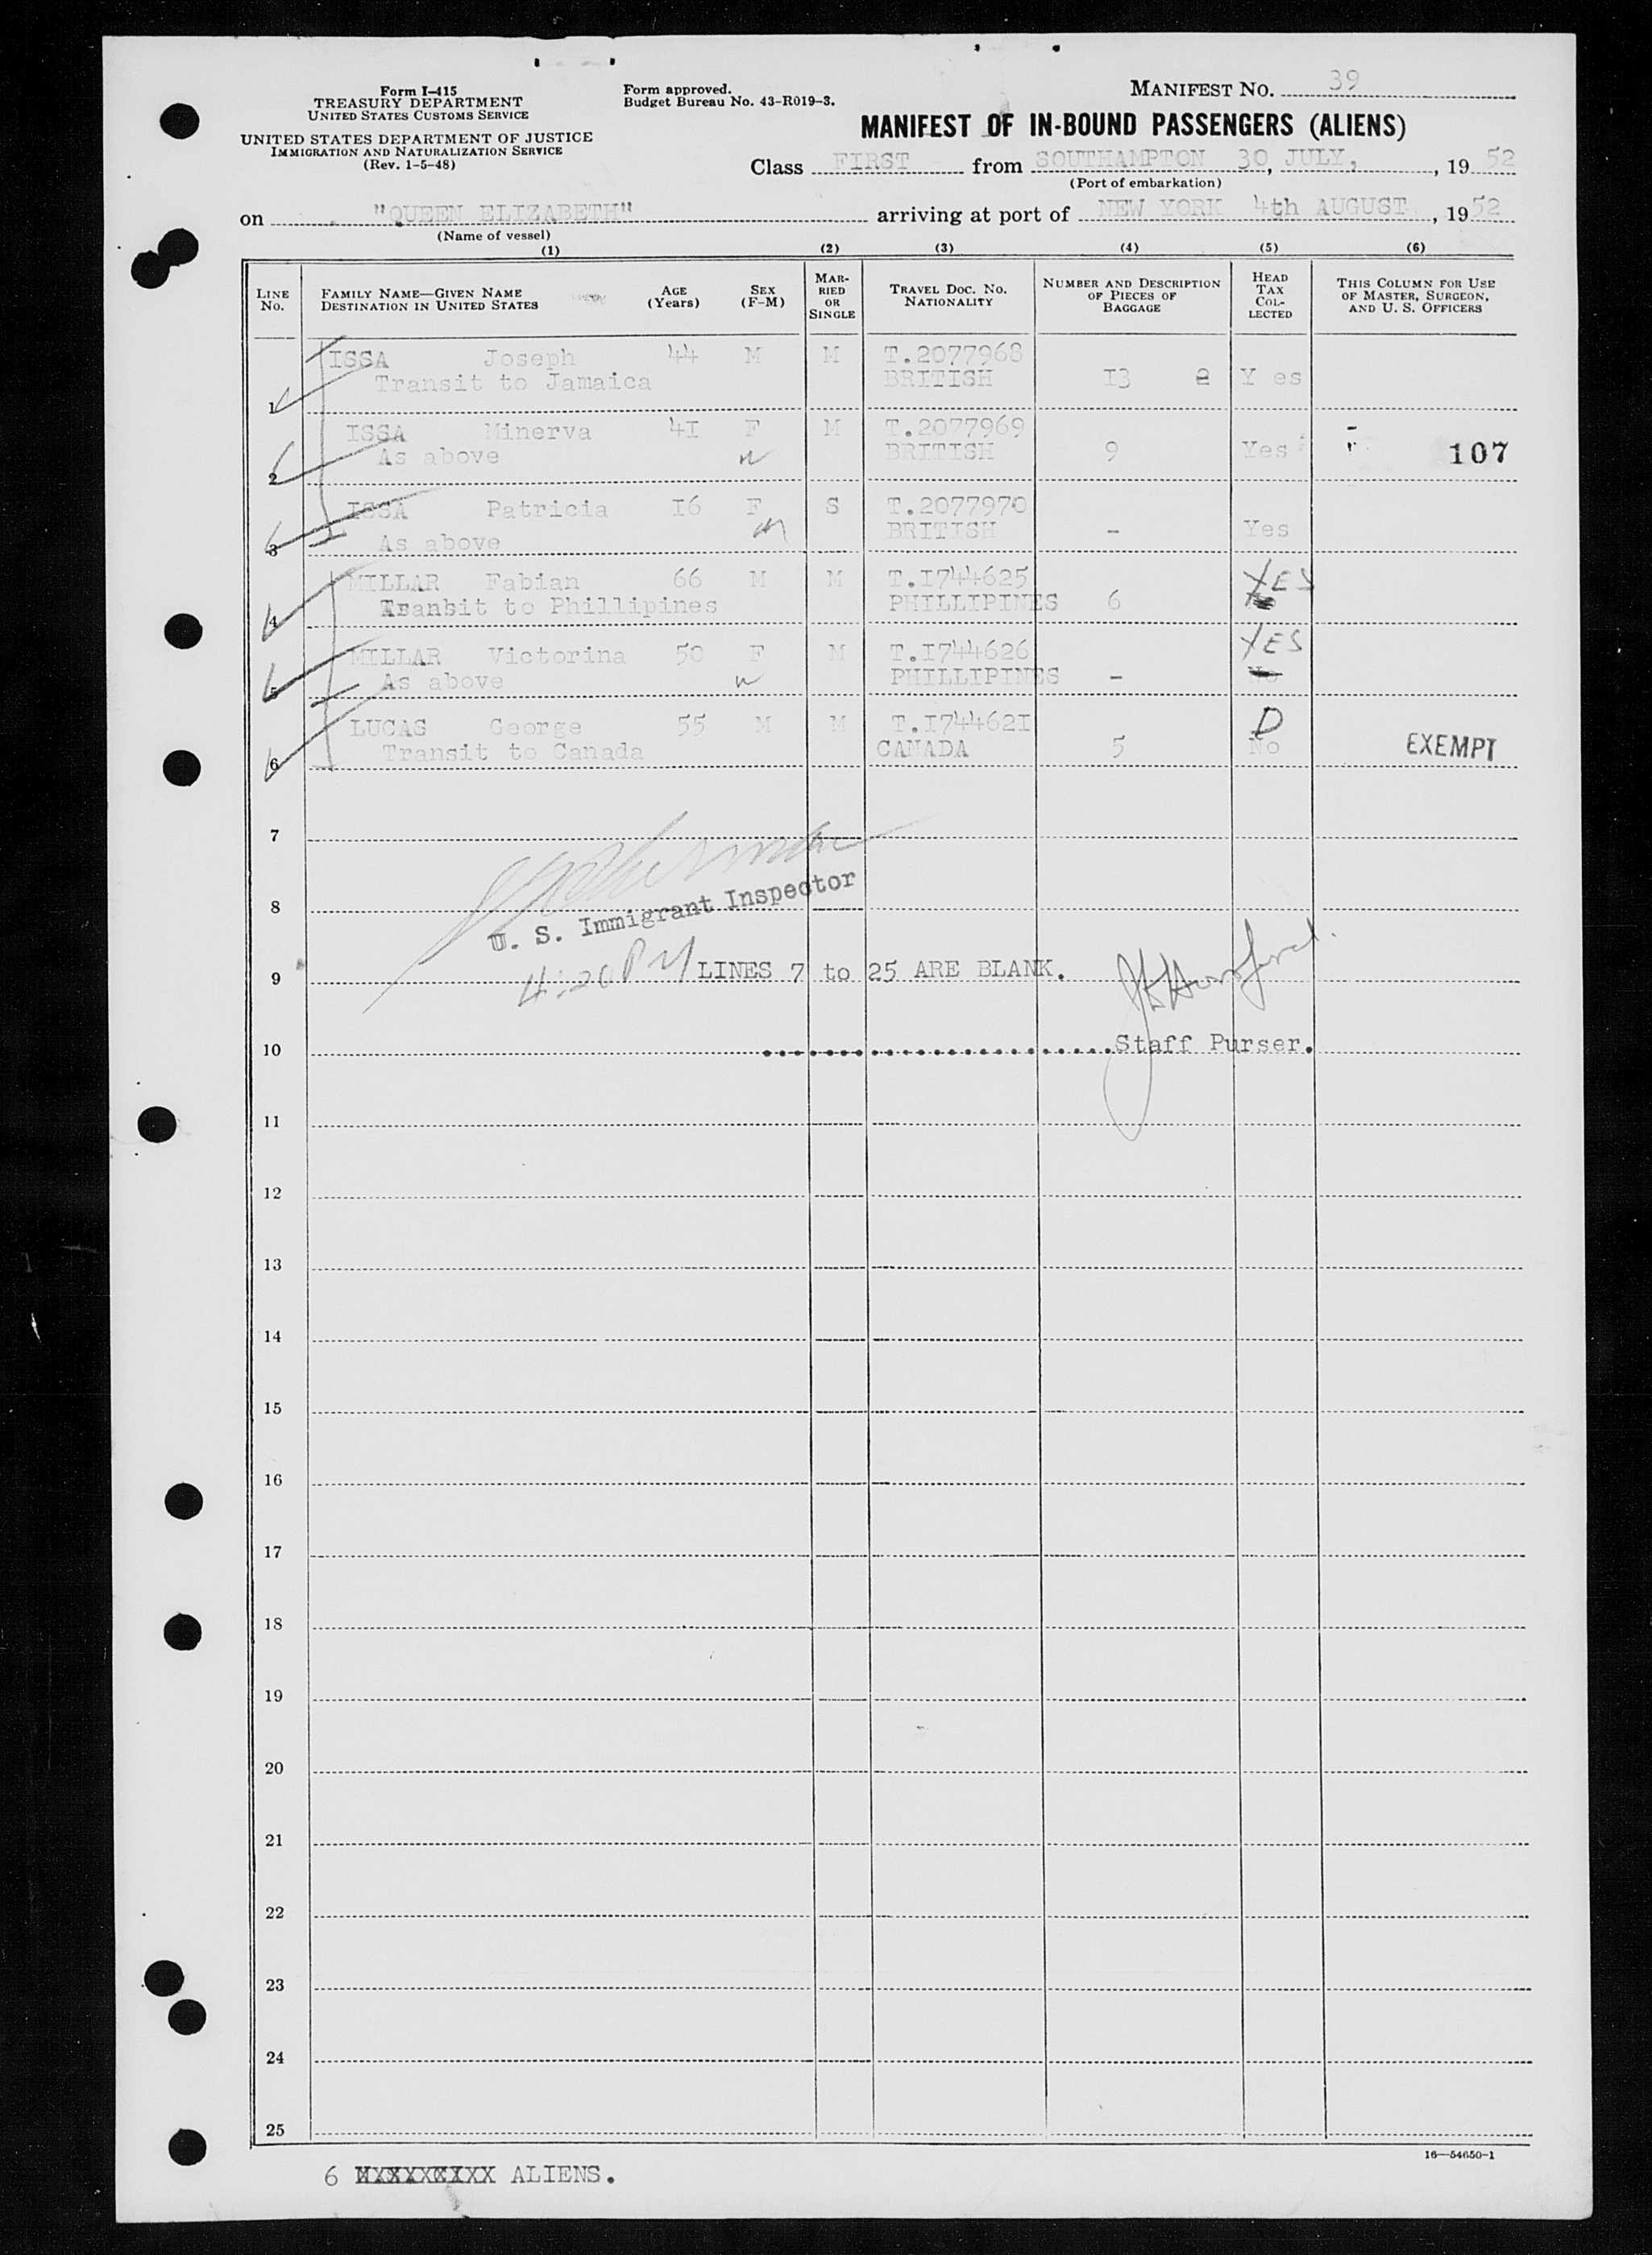 Form I-415
TREASURY DEPARTMENT
UNITED STATES CUSTOMS SERVICE
UNITED STATES DEPARTMENT OF JUSTICE
IMMIGRATION AND NATURALIZATION SERVICE
(Rev. 1-5-48)
Form approved.
Budget Bureau No. 43-R019-3.
MANIFEST NO. 39
MANIFEST OF IN-BOUND PASSENGERS (ALIENS)
Class FIRST from SOUTHAMPTON 30, JULY, , 19 52
(Port of embarkation)
on "QUEEN ELIZABETH" arriving at port of NEW YORK 4th AUGUST , 19 52
(Name of vessel)
(1) (2) (3) (4) (5) (6)
LINE NO.
FAMILY NAME—GIVEN NAME
DESTINATION IN UNITED STATES
AGE (Years)
SEX (F-M)
MARRIED OR SINGLE
TRAVEL DOC. NO. NATIONALITY
NUMBER AND DESCRIPTION OF PIECES OF BAGGAGE
HEAD TAX COLLECTED
THIS COLUMN FOR USE OF MASTER, SURGEON, AND U. S. OFFICERS
ISSA Joseph 44 M M T.2077968
1 Transit to Jamaica BRITISH 13 2 Y es
ISSA Minerva 41 F M T.2077969
2 As above BRITISH 9 Yes 107
ISSA Patricia 16 F S T.2077970
3 As above BRITISH - Yes
MILLAR Fabian 66 M M T.I744625 YES
4 Transit to Phillipines PHILLIPINES 6
MILLAR Victorina 50 F M T.I744626 YES
5 As above PHILLIPINES - No
LUCAS George 55 M M T.I74462I D
6 Transit to Canada CANADA 5 No EXEMPT
7
8
U. S. Immigrant Inspector
4:20 PM
9 LINES 7 to 25 ARE BLANK.
10 Staff Purser.
11
12
13
14
15
16
17
18
19
20
21
22
23
24
25
16—54650-1
6 XXXXXXXXX ALIENS.